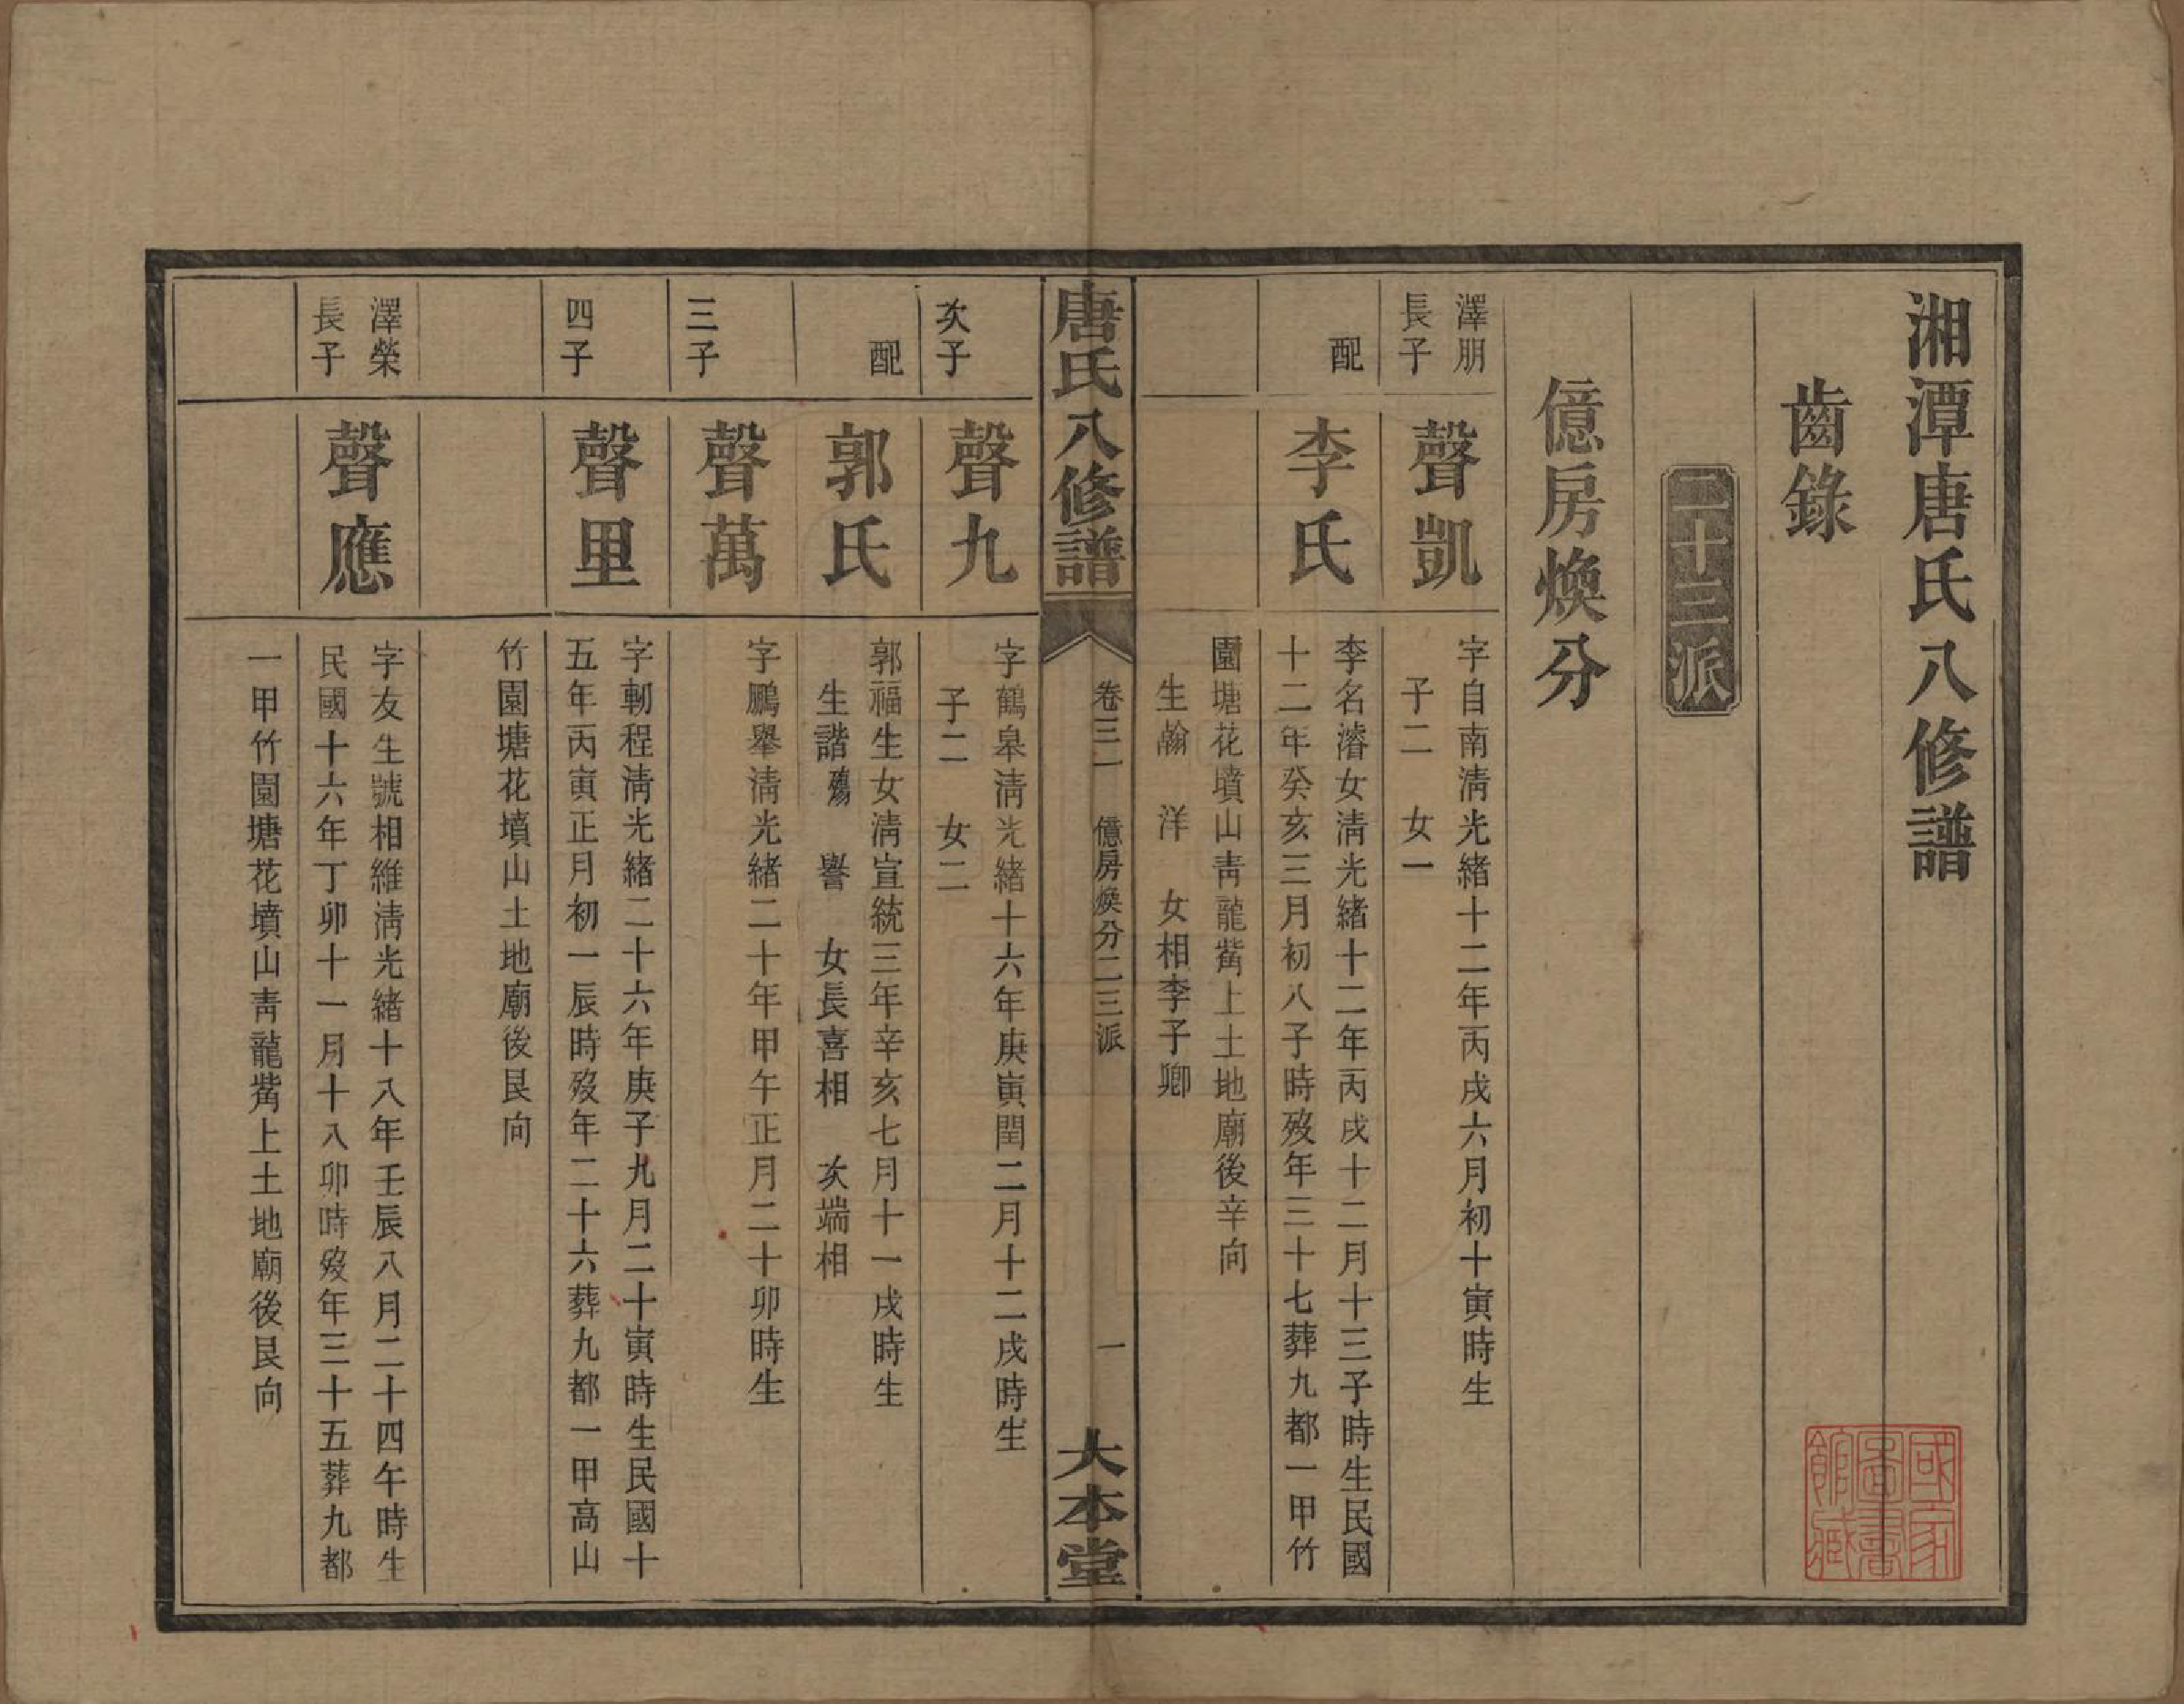 湘潭唐氏八修譜
齒錄
二十三派
億房煥分
澤朋
長子
聲凱
字自南淸光緒十二年丙戌六月初十寅時生
子二 女一
配
李氏
李名濬女淸光緒十二年丙戌十二月十三子時生民國
十二年癸亥三月初八子時歿年三十七葬九都一甲竹
園塘花墳山靑龍觜上土地廟後辛向
生翰 洋 女相李子卿
唐氏八修譜
卷三一 億房煥分二三派
一
大本堂
次子
聲九
字鶴皋淸光緒十六年庚寅閏二月十二戌時生
子二 女二
配
郭氏
郭福生女淸宣統三年辛亥七月十一戌時生
生諧殤 譽 女長喜相 次端相
三子
聲萬
字鵬舉淸光緒二十年甲午正月二十卯時生
四子
聲里
字軔程淸光緒二十六年庚子九月二十寅時生民國十
五年丙寅正月初一辰時歿年二十六葬九都一甲高山
竹園塘花墳山土地廟後艮向
澤榮
長子
聲應
字友生號相維淸光緒十八年壬辰八月二十四午時生
民國十六年丁卯十一月十八卯時歿年三十五葬九都
一甲竹園塘花墳山靑龍觜上土地廟後艮向
國家
圖書
館藏